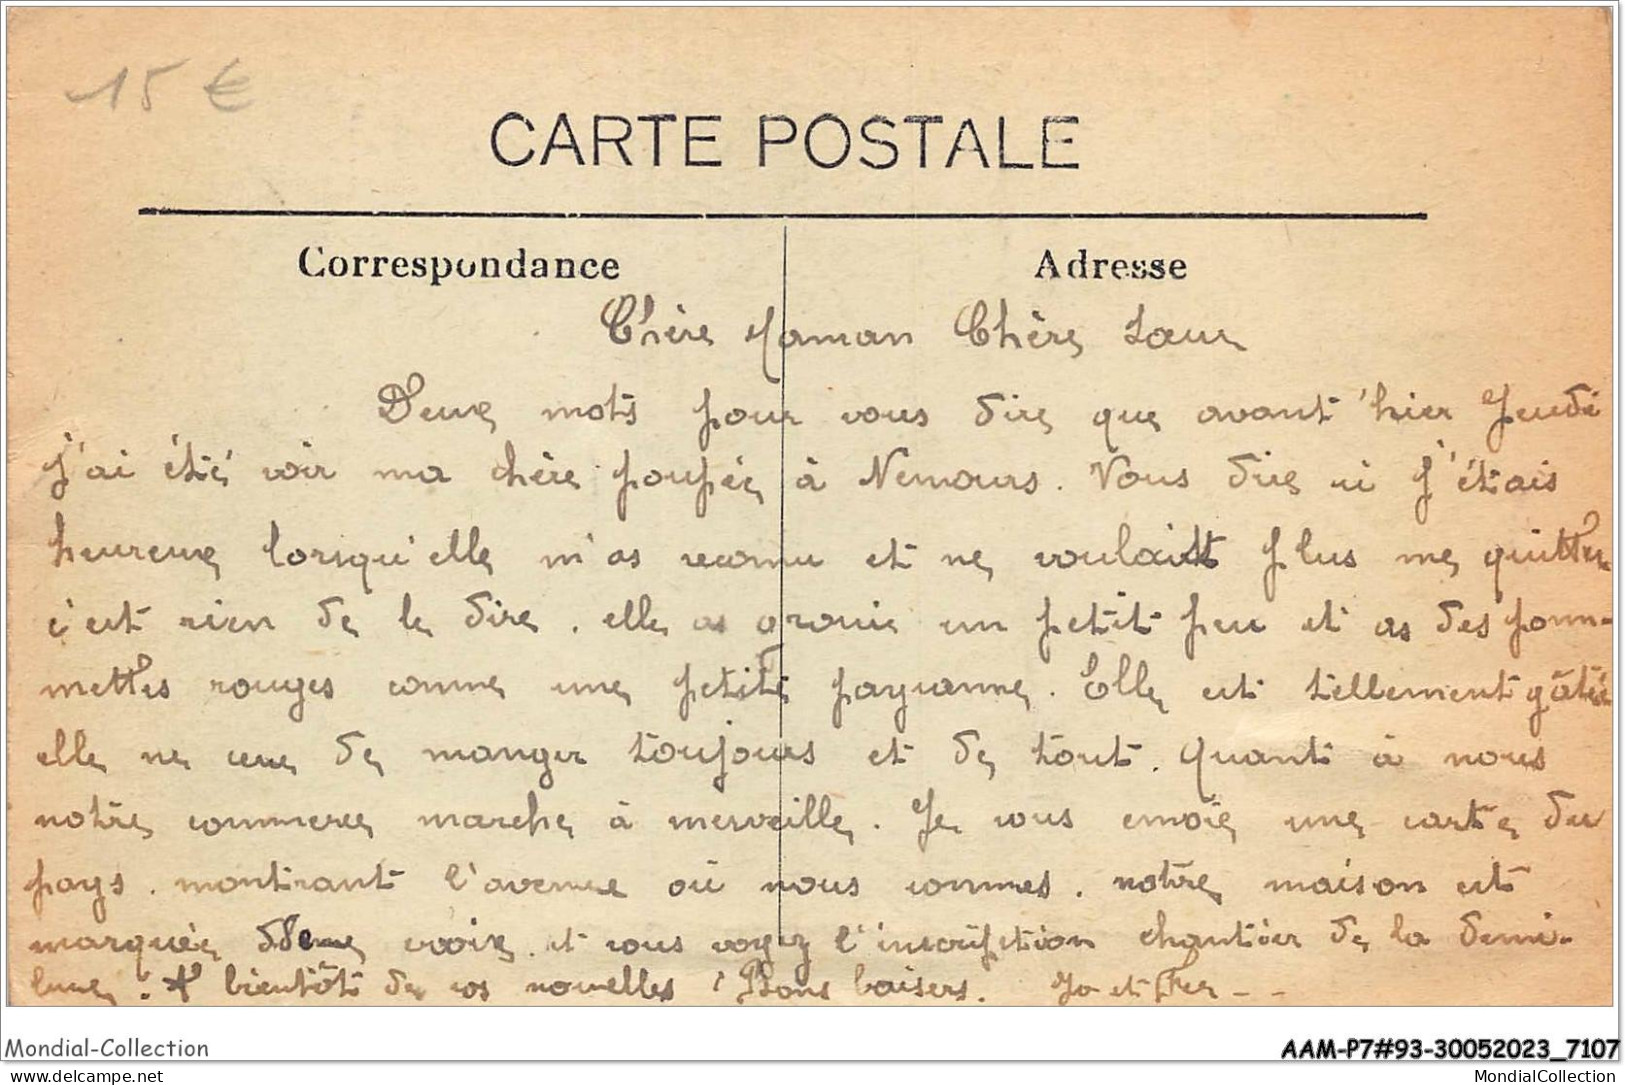 15 €
CARTE POSTALE
Correspondance
Adresse
Chère Maman Chère Sœur
Deux mots pour vous dire que avant'hier Jeudi
j'ai été voir ma chère poupée à Nemours. Vous dire si j'étais
heureuse lorsqu'elle m'as reconnu et ne voulait plus me quitter
c'est rien de le dire. elle as grossie un petit peu et as des pom-
mettes rouges comme une petite paysanne. Elle est tellement gâtée
elle ne cesse de manger toujours et de tout. Quant à nous
notre commerce marche à merveille. Je vous envoie une carte du
pays. montrant l'avenue où nous sommes. notre maison est
marquée d'une croix et vous voyez l'inscription chantier de la demi-
lune. A bientôt de vos nouvelles ! Bons baisers. Jo et
Mondial-Collection
AAM-P7#93-30052023_7107
www.delcampe.net
MondialCollection